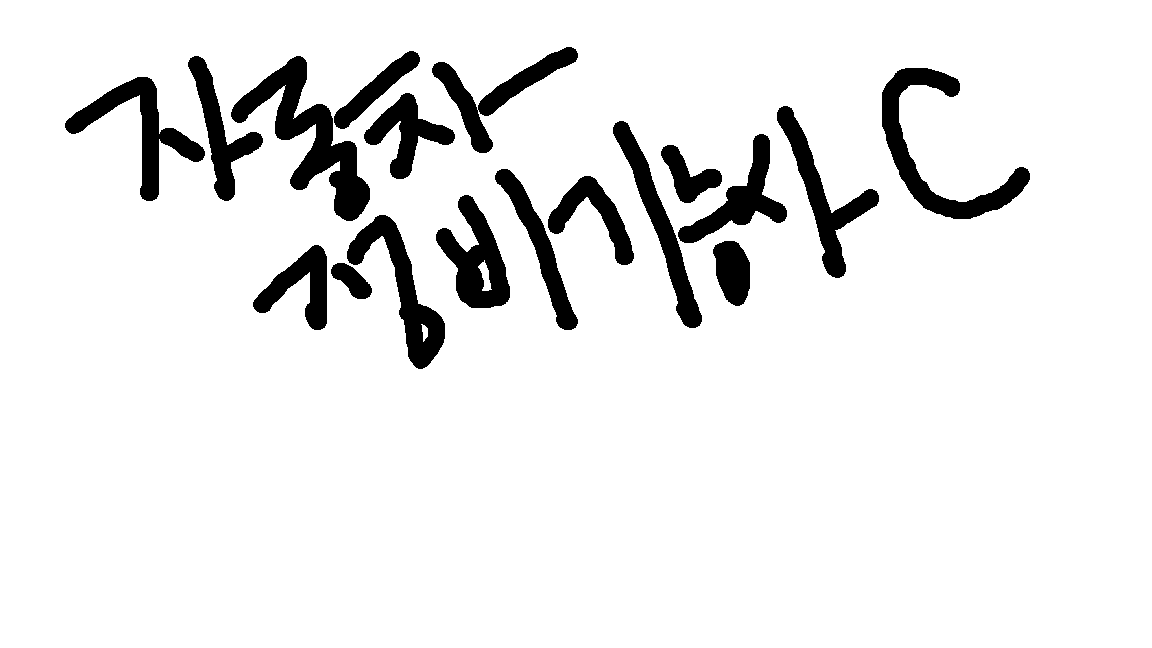 자동차
정비기능사 C